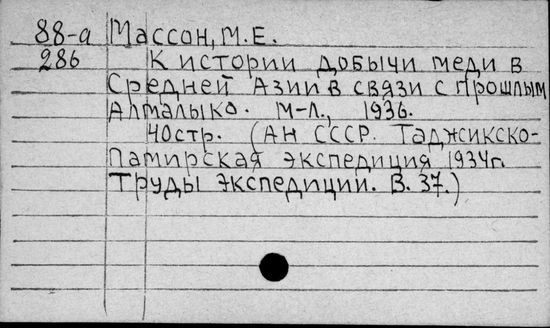 88-а Массон, М.Е.
286 К истории добычи меди в
Средней Азии в связи с прошлым
Алмалыка. М-Л., 1936.
40стр. (АН СССР. Таджикско-
Памирская экспедиция 1934г.
Труды экспедиции. В. 37.)